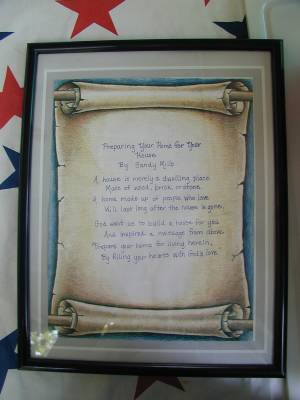 Preparing Your Home for Your
House
By Sandy Mills
A house is merely a dwelling place
Made of wood, brick or stone.
A home made up of people who love
Will last long after the house is gone.
God want us to build a house for you
And inspired a message from above.
Prepare your home for living herein,
By filling your hearts with God's love.